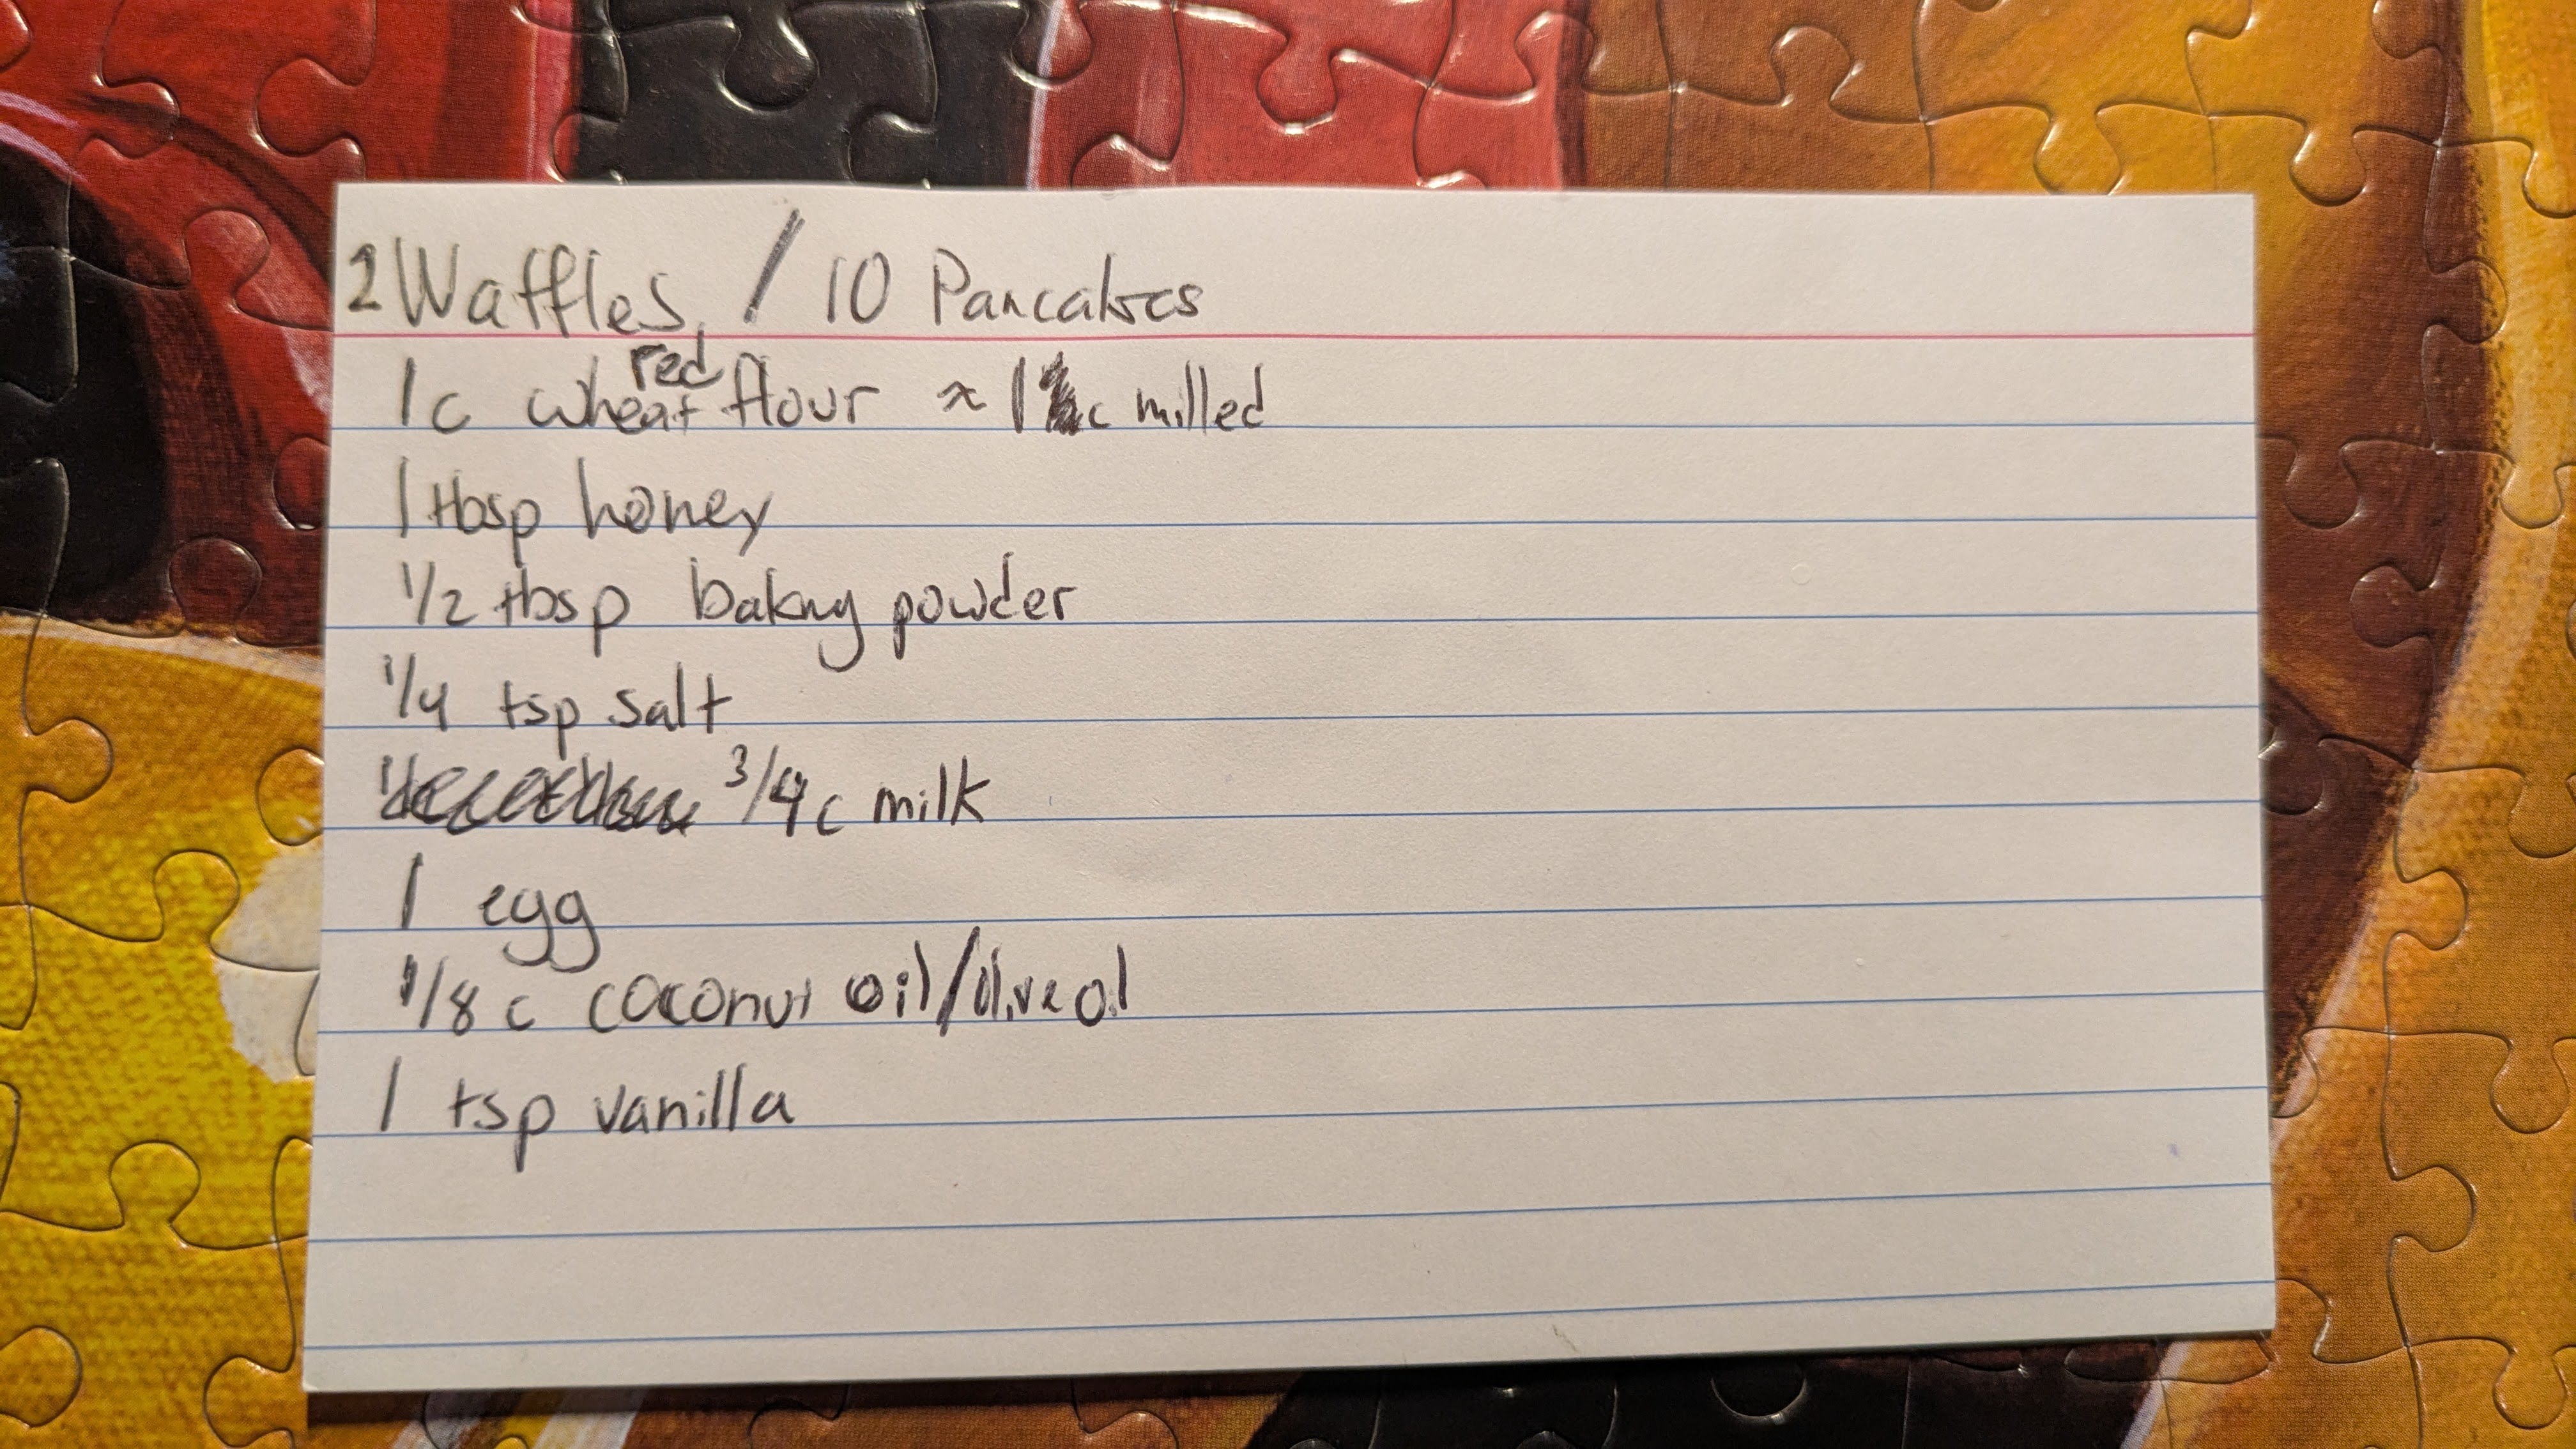 2 Waffles / 10 Pancakes
1c wheat red flour ≈ 1 c milled
1 tbsp honey
1/2 tbsp baking powder
1/4 tsp salt
3/4 c milk
1 egg
1/8 c coconut oil/olive oil
1 tsp vanilla